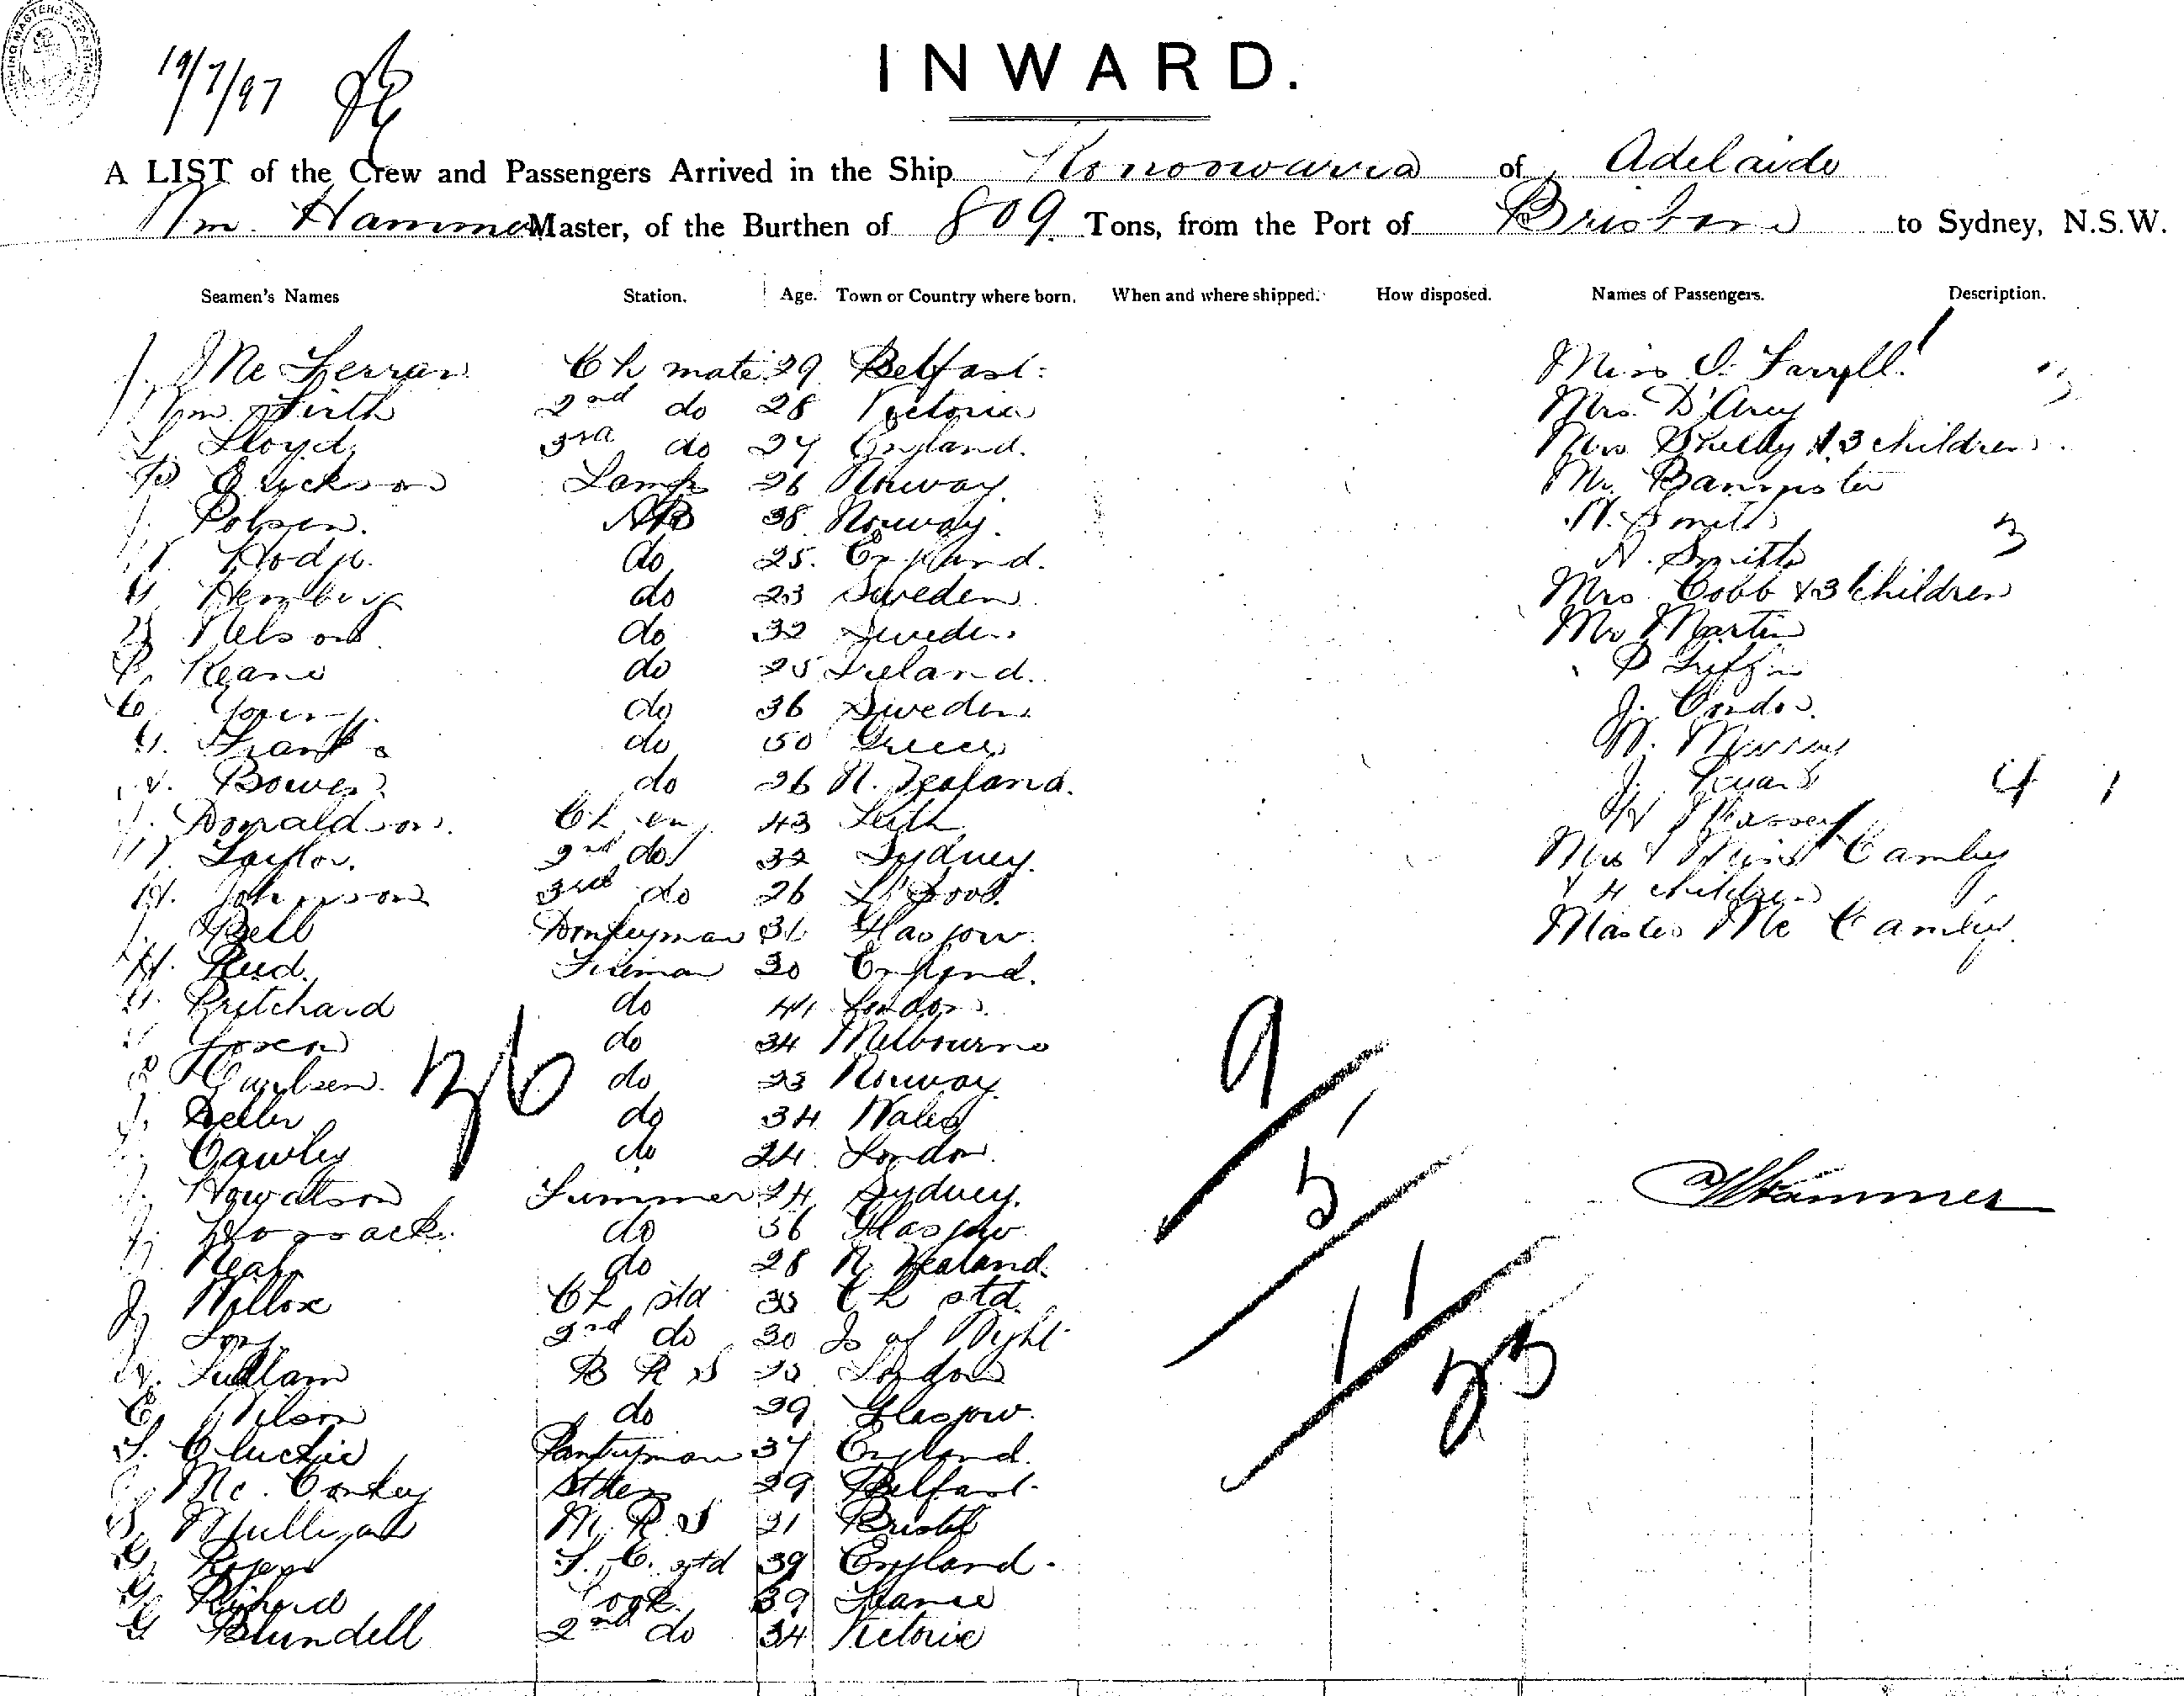 19/7/97
INWARD.
A LIST of the Crew and Passengers Arrived in the Ship Konoowarra of Adelaide
Wm. Hammer Master, of the Burthen of 809 Tons, from the Port of Brisbane to Sydney, N.S.W.
Seamen's Names Station. Age. Town or Country where born. When and where shipped. How disposed. Names of Passengers. Description.
J. McFerran Ch mate 29 Belfast Miss J. Farrell
Wm Firth 2nd do 28 Victoria Mrs. D'Arcy
L. Lloyd 3rd do 27 England. Mrs Shelby & 3 children
P Erickson Lamps 26 Norway. Mr Bannister
J. Polsen. AB 38 Norway. Smith
Hodge. do 25. England. A. Smith 3
Hemburg do 23 Sweden Mrs Cobb & 3 Children
Nelson do 32 Sweden Mr Martin
P. Keane do 25 Ireland. P Griffin
C. Young. do 36 Sweden J. Condon.
G. Franks do 50 Greece W. Murray
Bowes do 26 N. Zealand. J. Ryan 4 1
J. Donaldson. Ch eng. 43 Leith Massey
W. Taylor. 2nd do 32 Sydney. Mrs & Miss Camley
H. Johnson 3rd do 26 L'pool. & 4 children
J. Bell Donkeyman 31 Glasgow. Master Mc Camley
H. Reid. Fireman 30 England.
G. Pritchard do 41 London. 9
do 34 Melbourne
P Carlsen. 36 do 23 Norway
J. Deller do 34 Wales
Cawley do 24 London. 5
J. Howatson Trimmer 24 Sydney. WHammer
J. Hossack. do 36 Glasgow
J. Neal do 28 N. Zealand. 11
J. Willox Ch std 33 Ch std.
J. Long 2nd do 30 Is of Wight
W. Fullam B R S London 33
C. Wilson do 29 Glasgow.
S. Pantryman 37 England.
Mc. Conkey Stdess 29 Belfast
Mulligan M. R. S 21 Bristol
G. Roger S. C. std 39 England
G. Richard Cook 39 France
G Blundell 2nd do 34 Victoria